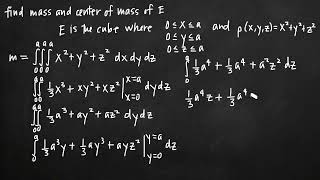 find mass and center of mass of E
E is the cube where 0 ≤ x ≤ a
0 ≤ y ≤ a
0 ≤ z ≤ a
and ρ(x,y,z)=x²+y²+z²
m = ∫₀ᵃ∫₀ᵃ∫₀ᵃ x²+y²+z² dx dy dz
∫₀ᵃ∫₀ᵃ 1/3 x³ + xy² + xz² |ₓ₌₀ˣ⁼ᵃ dy dz
∫₀ᵃ∫₀ᵃ 1/3 a³ + ay² + az² dy dz
∫₀ᵃ 1/3 a³y + 1/3 ay³ + ayz² | y=a y=0 dz
∫₀ᵃ 1/3 a⁴ + 1/3 a⁴ + a²z² dz
1/3 a⁴z + 1/3 a⁴